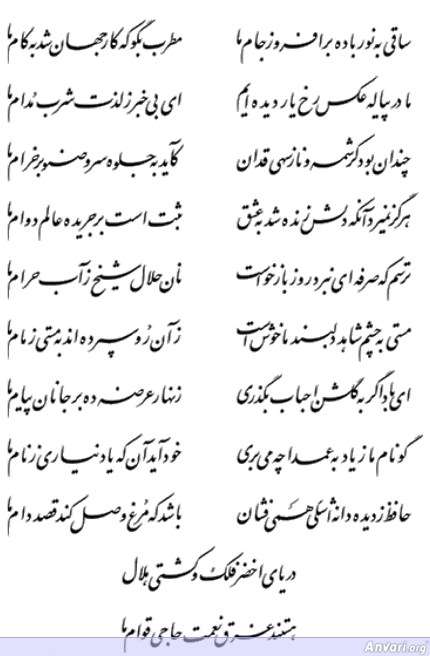 ساقی به نور باده برافروز جام ما مطرب بگو که کار جهان شد به کام ما
ما در پیاله عکس رخ یار دیده ایم ای بی خبر ز لذت شرب مُدام ما
چندان بود کرشمه و ناز سهی قدان کآید به جلوه سرو صنوبر خرام ما
هرگز نمیرد آنکه دلش زنده شد به عشق ثبت است بر جریده عالم دوام ما
ترسم که صرفه ای نبرد روز بازخواست نان حلال شیخ ز آب حرام ما
مستی به چشم شاهد دلبند ما خوش است ز آن رُو سپرده اند به مستی زمام ما
ای باد اگر به گلشن احباب بگذری زنهار عرضه ده بر جانان پیام ما
گو نام ما ز یاد به عمدا چه می بری خود آید آن که یاد نیاری ز نام ما
حافظ ز دیده دانه اشکی همی فشان باشد که مُرغ وصل کند قصد دام ما
دریای اخضر فلک و کشتی هلال
هستند غرق نعمت حاجی قوام ما
Anvari.org